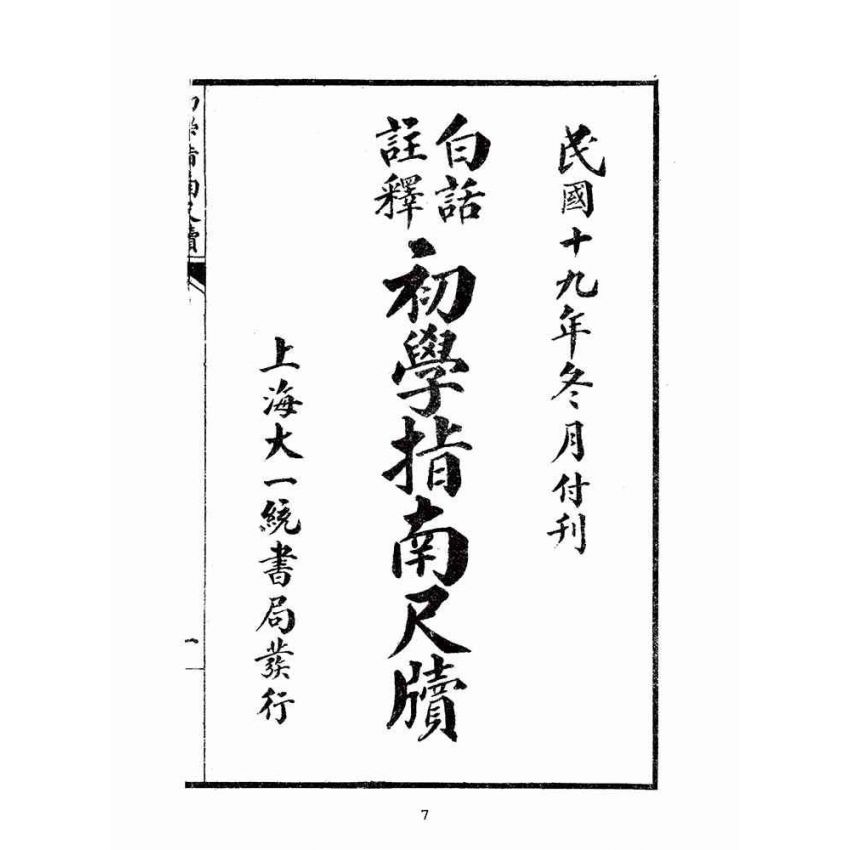 民國十九年冬月付刊
白話
註釋
初學指南尺牘
上海大一統書局發行
初學指南尺牘
一
7